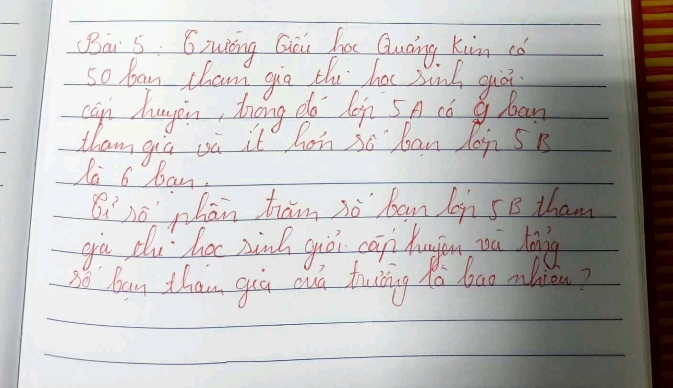 Bài 5. Trường Tiểu học Quảng Kim có
50 bạn tham gia thi học sinh giỏi
cấp huyện, trong đó lớp 5A có 9 bạn
tham gia và ít hơn số bạn lớp 5B
là 6 bạn.
Tỉ số phần trăm số bạn lớp 5B tham
gia thi học sinh giỏi cấp huyện và tổng
số bạn tham gia của trường là bao nhiêu?